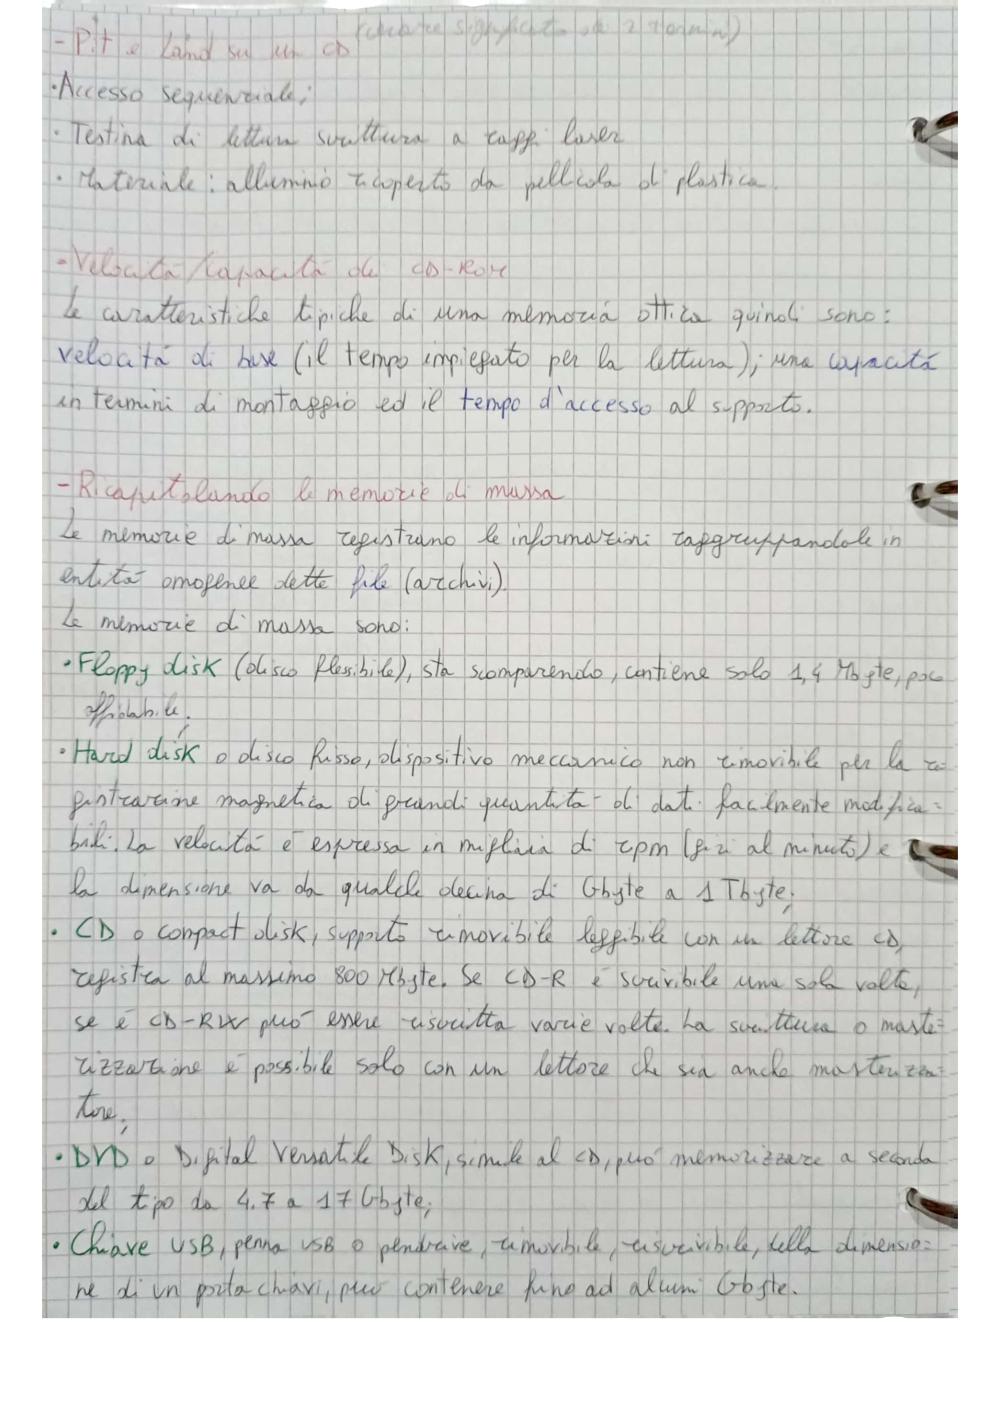 (cercare significato dei 2 termini)
- Pit e Land su un CD
• Accesso sequenziale;
• Testina di lettura scrittura a raggi laser
• Materiale: alluminio ricoperto da pellicola di plastica.
- Velocità/Capacità di CD-ROM
Le caratteristiche tipiche di una memoria ottica quindi sono:
velocità di base (il tempo impiegato per la lettura); una capacità
in termini di montaggio ed il tempo d'accesso al supporto.
- Ricapitolando le memorie di massa
Le memorie di massa registrano le informazioni raggruppandole in
entità omogenee dette file (archivi).
Le memorie di massa sono:
• Floppy disk (disco flessibile), sta scomparendo, contiene solo 1,4 Mbyte, poco
affidabile;
• Hard disk o disco fisso, dispositivo meccanico non rimovibile per la re=
gistrazione magnetica di grandi quantità di dati facilmente modifica=
bili. La velocità è espressa in migliaia di rpm (giri al minuto) e
la dimensione va da qualche decina di Gbyte a 1 Tbyte;
• CD o compact disk, supporto rimovibile leggibile con un lettore CD,
registra al massimo 800 Mbyte. Se CD-R è scrivibile una sola volta,
se è CD-RW può essere riscritta varie volte. La scrittura o maste=
rizzazione è possibile solo con un lettore che sia anche masterizza=
tore;
• DVD o Digital Versatile Disk, simile al CD, può memorizzare a seconda
del tipo da 4.7 a 17 Gbyte;
• Chiave USB, penna USB o pendraive, rimovibile, riscrivibile, della dimensio=
ne di un porta chiavi, può contenere fino ad alcuni Gbyte.